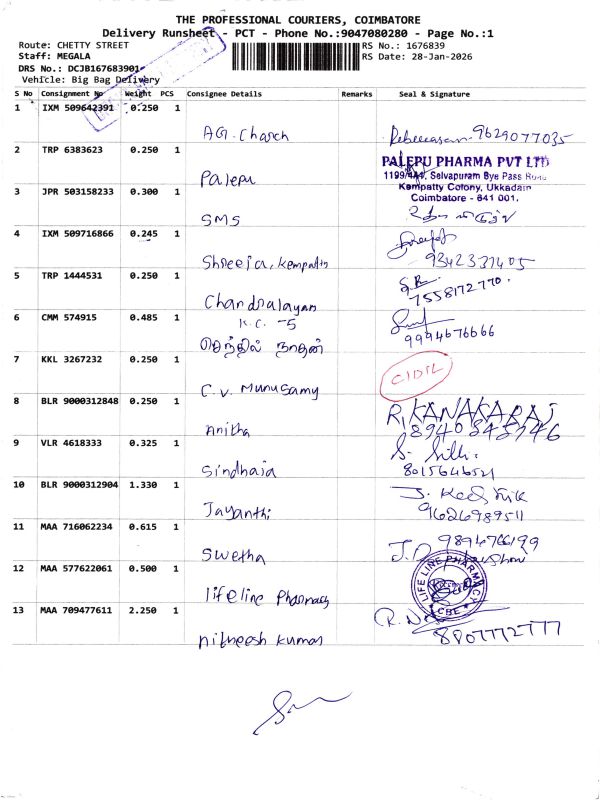 THE PROFESSIONAL COURIERS, COIMBATORE
Delivery Runsheet - PCT - Phone No.:9047080280 - Page No.:1
Route: CHETTY STREET
Staff: MEGALA
DRS No.: DCJB167683901
Vehicle: Big Bag Delivery
RS No.: 1676839
RS Date: 28-Jan-2026
S No Consignment No Weight PCS Consignee Details Remarks Seal & Signature
1 IXM 509642391 0.250 1
AG. Church 9629077035
2 TRP 6383623 0.250 1
Palepu
PALEPU PHARMA PVT LTD
1199/4A1, Selvapuram Bye Pass Road
Kempatty Colony, Ukkadam
Coimbatore - 641 001.
3 JPR 503158233 0.300 1
SMS
4 IXM 509716866 0.245 1
Shreeja, Kempatty 9342331405
5 TRP 1444531 0.250 1
Chandralayan 7558172770.
K.C. -5
6 CMM 574915 0.485 1
செந்தில் நாதன் 9994676666
7 KKL 3267232 0.250 1
C.V. Munusamy
8 BLR 9000312848 0.250 1
Anitha
R, KANAKARAJ
9 VLR 4618333 0.325 1
Sindhaja
10 BLR 9000312904 1.330 1
Jayanthi 9626989511
11 MAA 716062234 0.615 1
Swetha
12 MAA 577622061 0.500 1
lifeline Pharmacy
LIFE LINE PHARMACY
CBE
13 MAA 709477611 2.250 1
Nitheesh kumar 8807772777